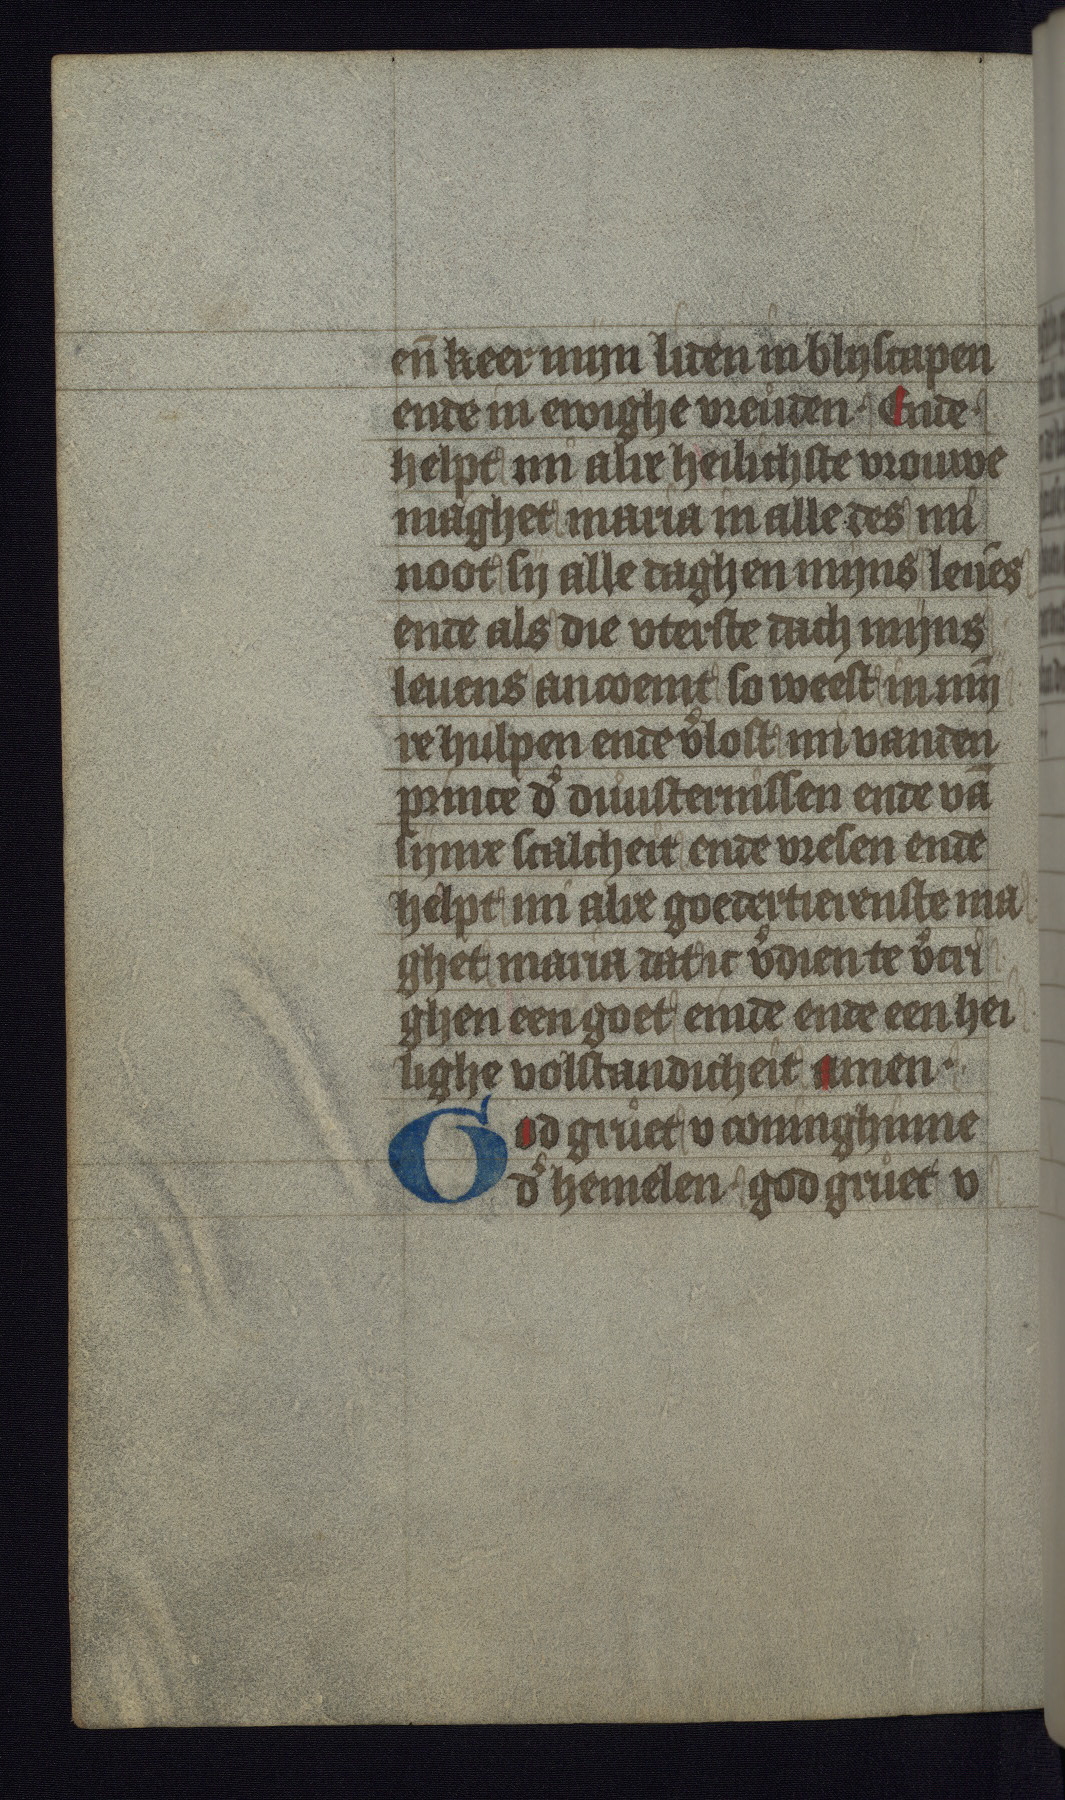 en̄ keer mijn liden in blijscapen
ende in ewighe vreůden · Ende
helpt mi alre heilichste vrouwe
maghet maria in alle des mi
noot sij alle daghen mijns leuēs
ende als die vterste dach mijns
leuens an coemt so weest in mij̄
re hulpen ende v̊lost mi vanden
prince d̊ duusternissen ende vā
sijnre scalcheit ende vresen ende
helpt mi alre goedertierenste ma
ghet maria dat ic v̊dien te v̊cri
ghen een goet einde ende een hei
lighe volstandicheit amen ·
God grůet v coninghinne
d̊ hemelen · god grůet v